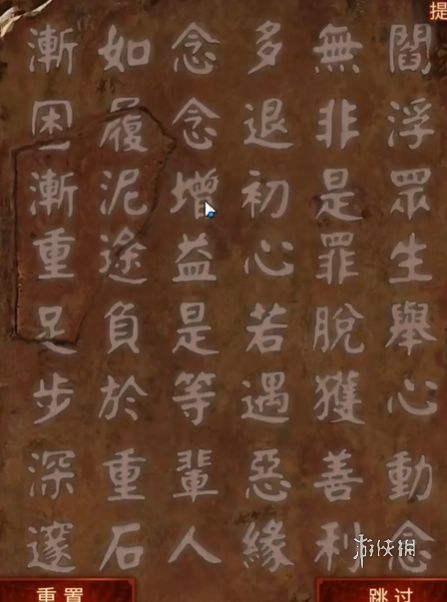 提
閻浮眾生舉心動念
無非是罪脫獲善利
多退初心若遇惡緣
念念增益是等輩人
如履泥途負於重石
漸困漸重足步深邃
游侠网
重置
跳过